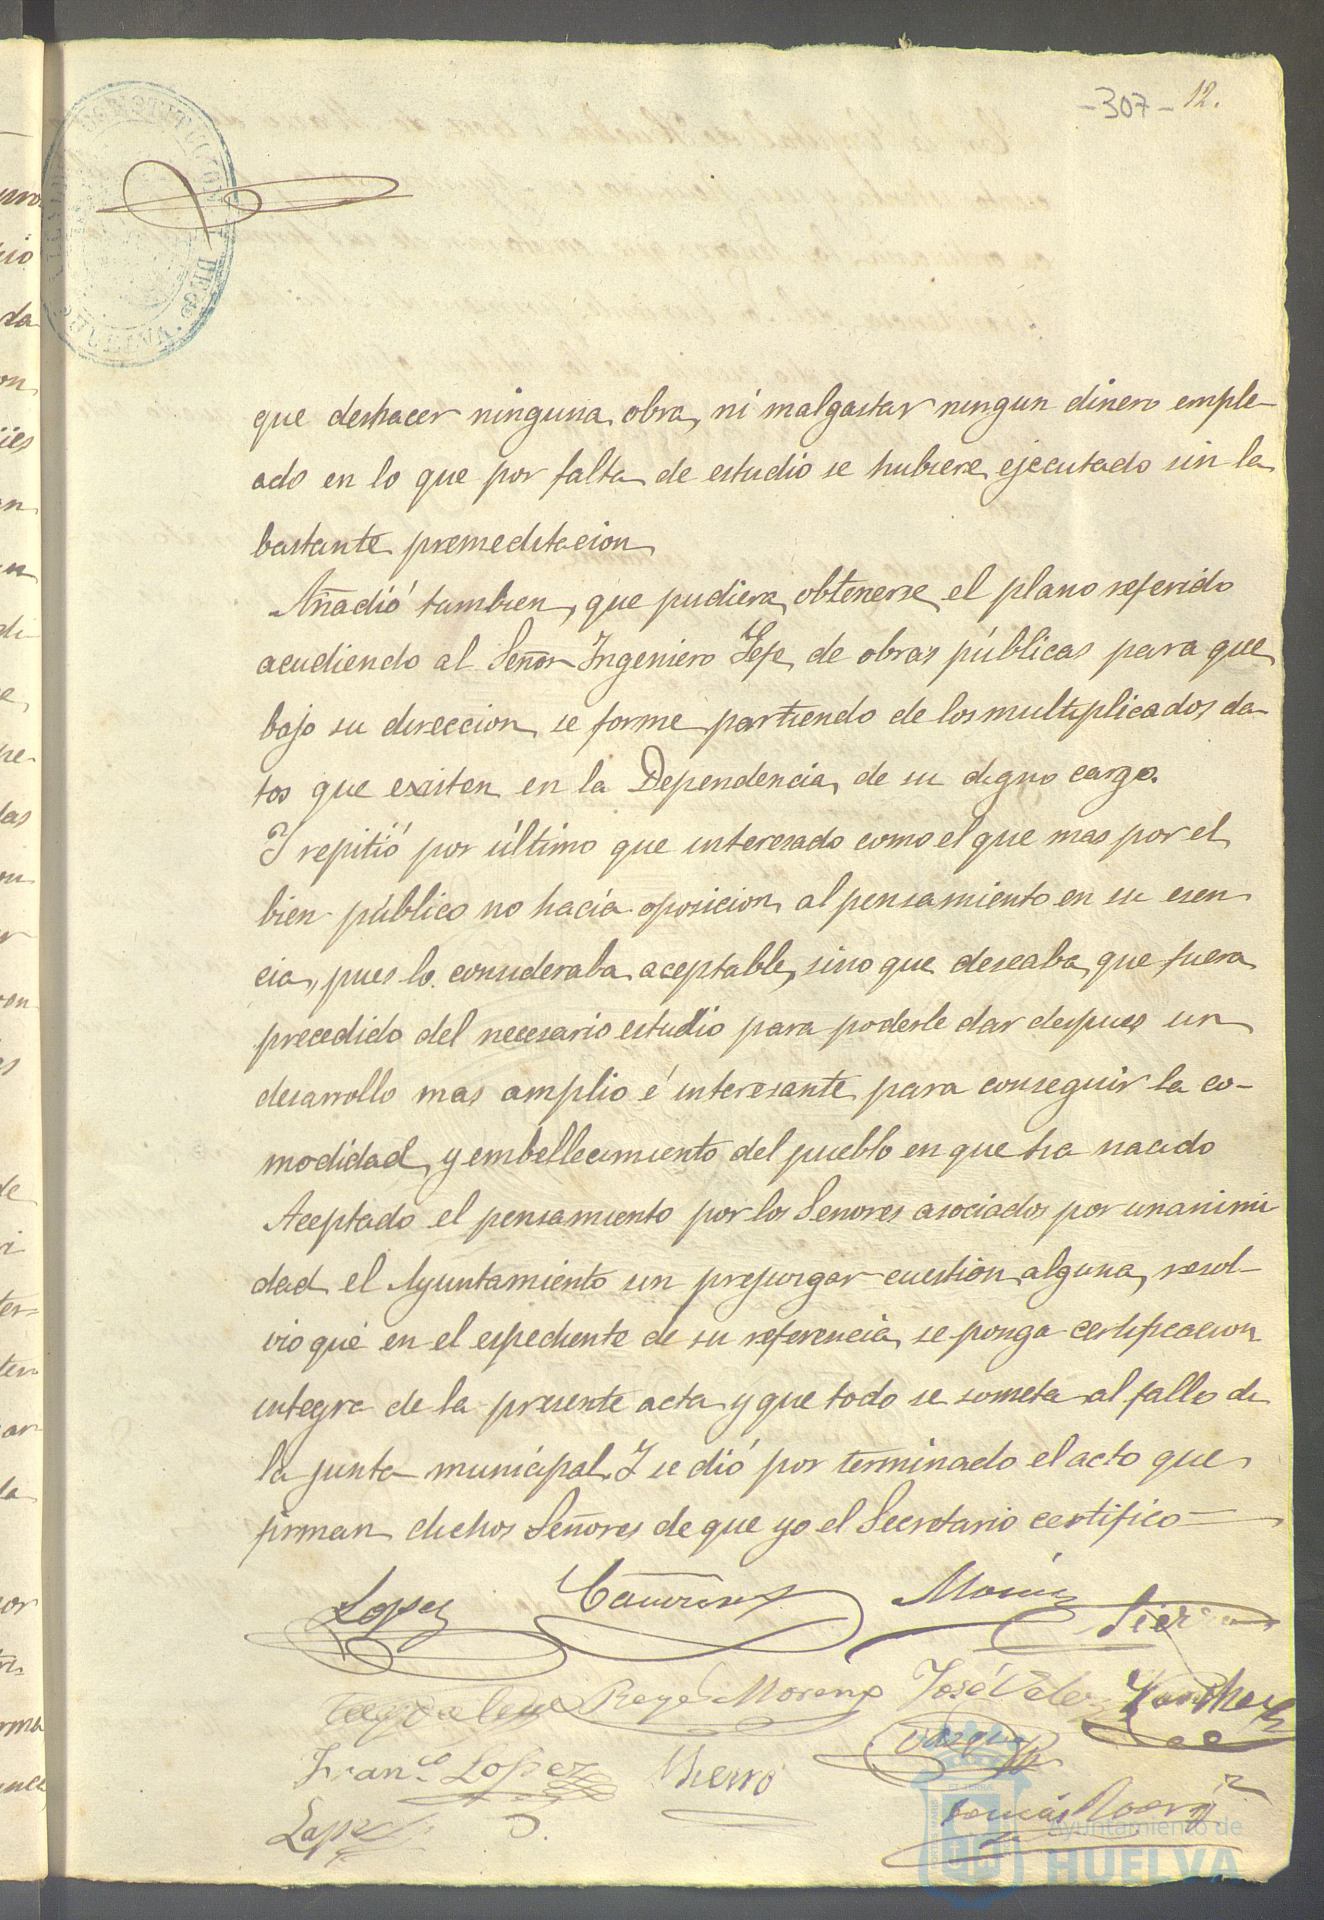 -307- 12.
que deshacer ninguna obra, ni malgastar ningun dinero emple-
ado en lo que por falta de estudio se hubiere ejecutado sin la
bastante premeditacion
Añadió tambien, que pudiera obtenerse el plano referido
acudiendo al Señor Ingeniero Gefe de obras públicas para que
bajo su direccion se forme partiendo de los multiplicados da-
tos que existen en la Dependencia de su digno cargo.
Y repitió por último que interesado como el que mas por el
bien público no hacía oposicion al pensamiento en su esen
cia, pues lo consideraba aceptable, sino que deseaba que fuera
precedido del necesario estudio para poderle dar despues un
desarrollo mas amplio é interesante para conseguir la co-
modidad y embellecimiento del pueblo en que ha nacido
Aceptado el pensamiento por los Señores asociados por unanimi
dad el Ayuntamiento sin prejuzgar cuestion alguna, resol-
vió que en el espediente de su referencia se ponga certificacion
integra de la presente acta y que todo se someta al fallo de
la junta municipal. Y se dió por terminado el acto que
firman dichos Señores de que yo el Secretario certifico=
Lopez Morin Sierra
Reyes Moreno José Velez Sanchez
Fran.co Lopez Hierro Vazquez
Lopez Tomás Rodrig
Ayuntamiento de
HUELVA